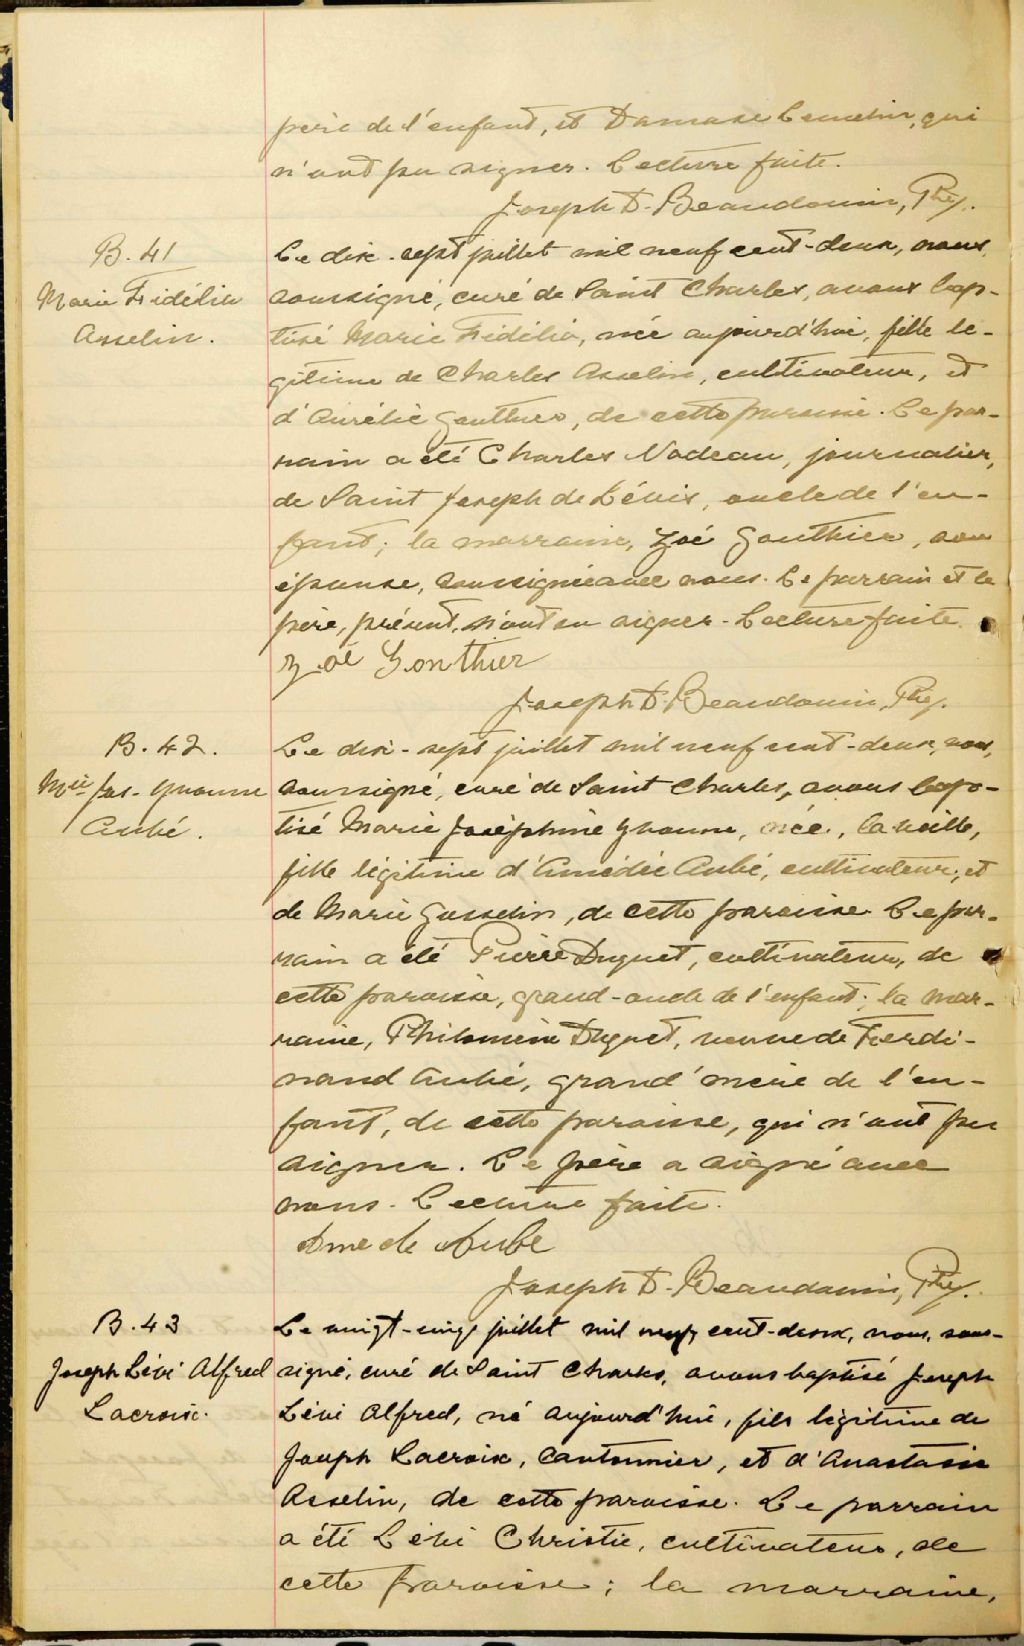 père de l'enfant, et Damase Lemelin, qui
n'ont pu signer. Lecture faite.
Joseph D. Beaudouin, Ptre.
B. 41
Marie Fidélia
Asselin.
Le dix-sept juillet mil neuf cent-deux, nous,
soussigné, curé de Saint Charles, avons bap-
tisé Marie Fidélia, née aujourd'hui, fille lé-
gitime de Charles Asselin, cultivateur, et
d'Aurélie Gauthier, de cette paroisse. Le par-
rain a été Charles Nadeau, journalier,
de Saint Joseph de Lévis, oncle de l'en-
fant; la marraine, Zoé Gonthier, son
épouse, soussignée avec nous. Le parrain et le
père, présent, n'ont su signer. Lecture faite.
Zoé Gonthier
Joseph D. Beaudouin, Ptre.
B. 42.
Mie Jos. Yvonne
Aubé.
Le dix-sept juillet mil neuf cent-deux, nous,
soussigné, curé de Saint Charles, avons bap-
tisé Marie Joséphine Yvonne, née, la veille,
fille légitime d'Amédée Aubé, cultivateur, et
de Marie Gosselin, de cette paroisse. Le par-
rain a été Pierre Duquet, cultivateur, de
cette paroisse, grand-oncle de l'enfant; la mar-
raine, Philomène Duquet, veuve de Ferdi-
nand Aubé, grand'mère de l'en-
fant, de cette paroisse, qui n'ont pu
signer. Le père a signé avec
nous. Lecture faite.
Ame de Aube
Joseph D. Beaudouin, Ptre.
B. 43
Joseph Lévi Alfred
Lacroix.
Le vingt-cinq juillet mil neuf cent-deux, nous, sous-
signé, curé de Saint Charles, avons baptisé Joseph
Lévi Alfred, né aujourd'hui, fils légitime de
Joseph Lacroix, cantonnier, et d'Anastasie
Asselin, de cette paroisse. Le parrain
a été Lévi Christie, cultivateur, de
cette paroisse; la marraine,